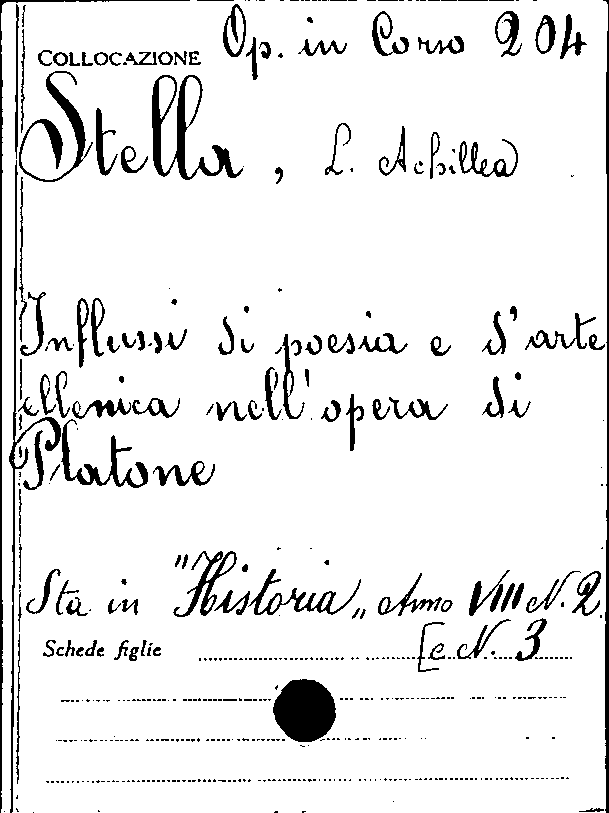 COLLOCAZIONE Op. in Corso 204
Stella, L. Achillea
Influssi di poesia e d'arte
ellenica nell'opera di
Platone
Sta in "Historia„ Anno VIII N. 2
[e N. 3
Schede figlie